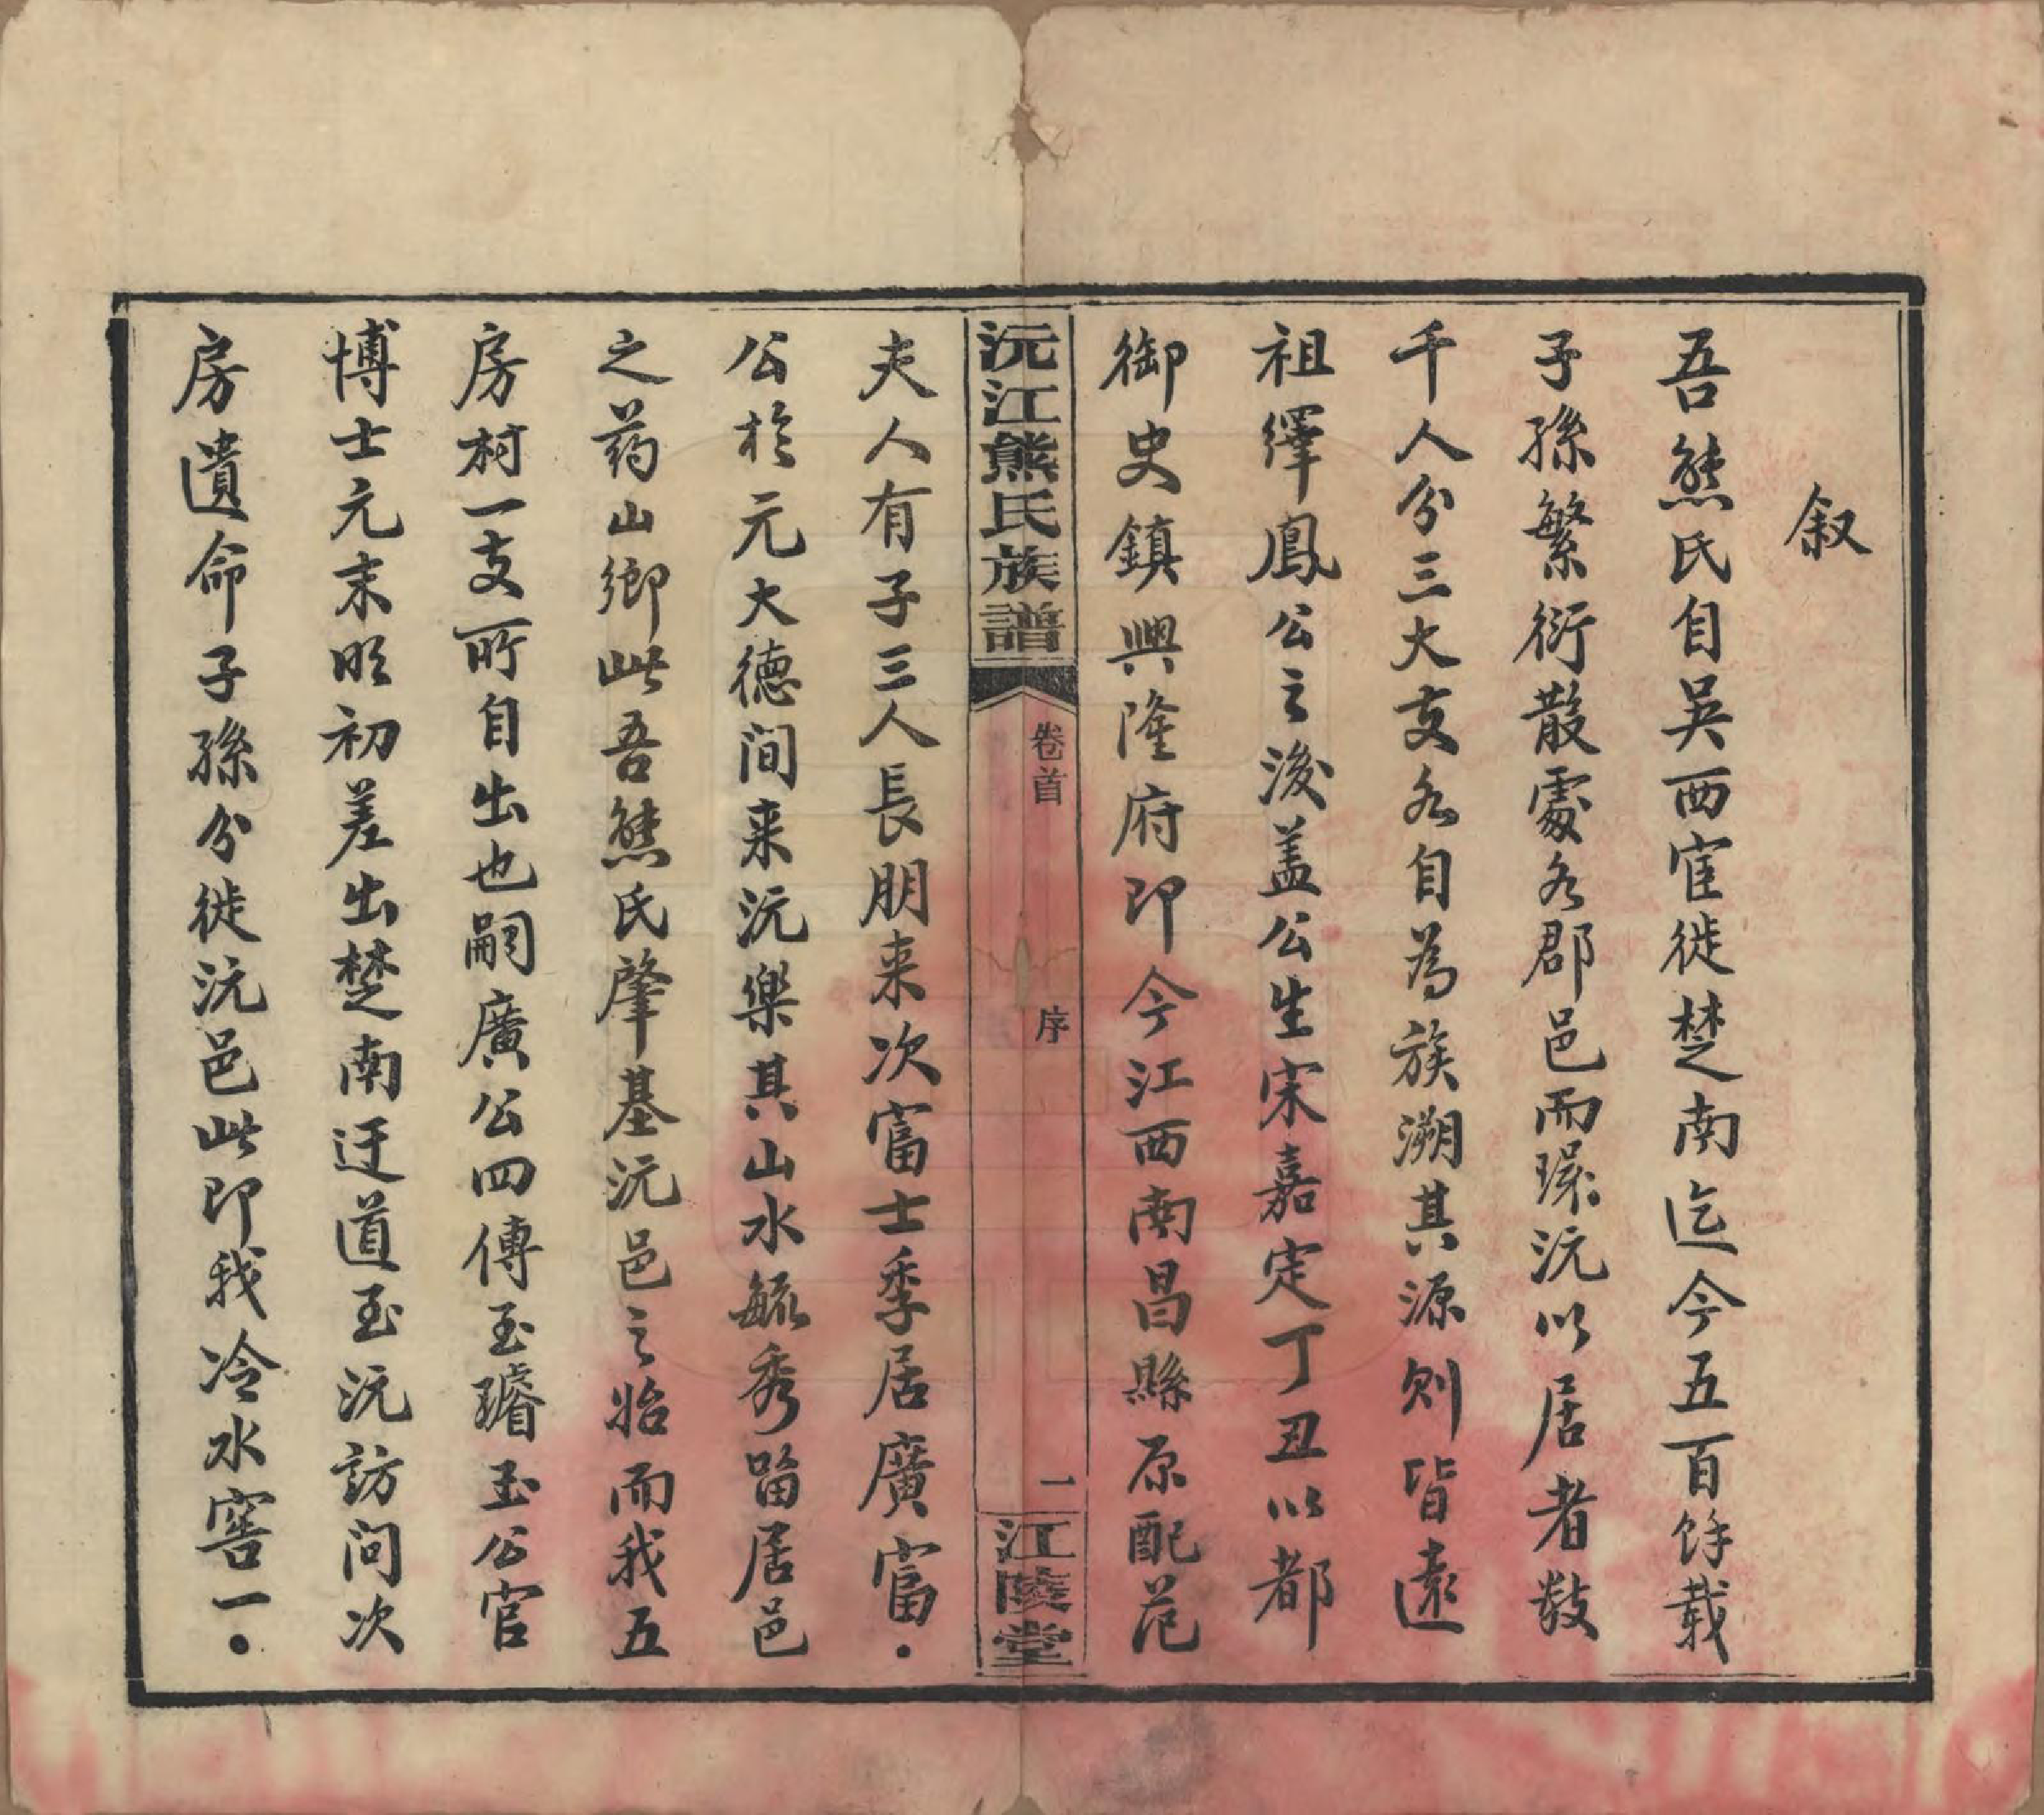 叙
吾熊氏自吳西宦徙楚南迄今五百馀载
子孫繁衍散處各郡邑而環沅以居者数
千人分三大支各自為族溯其源则皆遠
祖繹鳳公之後盖公生宋嘉定丁丑以都
御史鎮興隆府即今江西南昌縣原配范
沅江熊氏族譜
卷首
序
一
江陵堂
夫人有子三人長朋来次富士季居廣富·
公於元大德间来沅樂其山水毓秀畱居邑
之药山鄉此吾熊氏肇基沅邑之始而我五
房村一支所自出也嗣廣公四傳至璿玉公官
博士元末明初差出楚南迂道至沅訪问次
房遺命子孫分徙沅邑此即我冷水窖一·